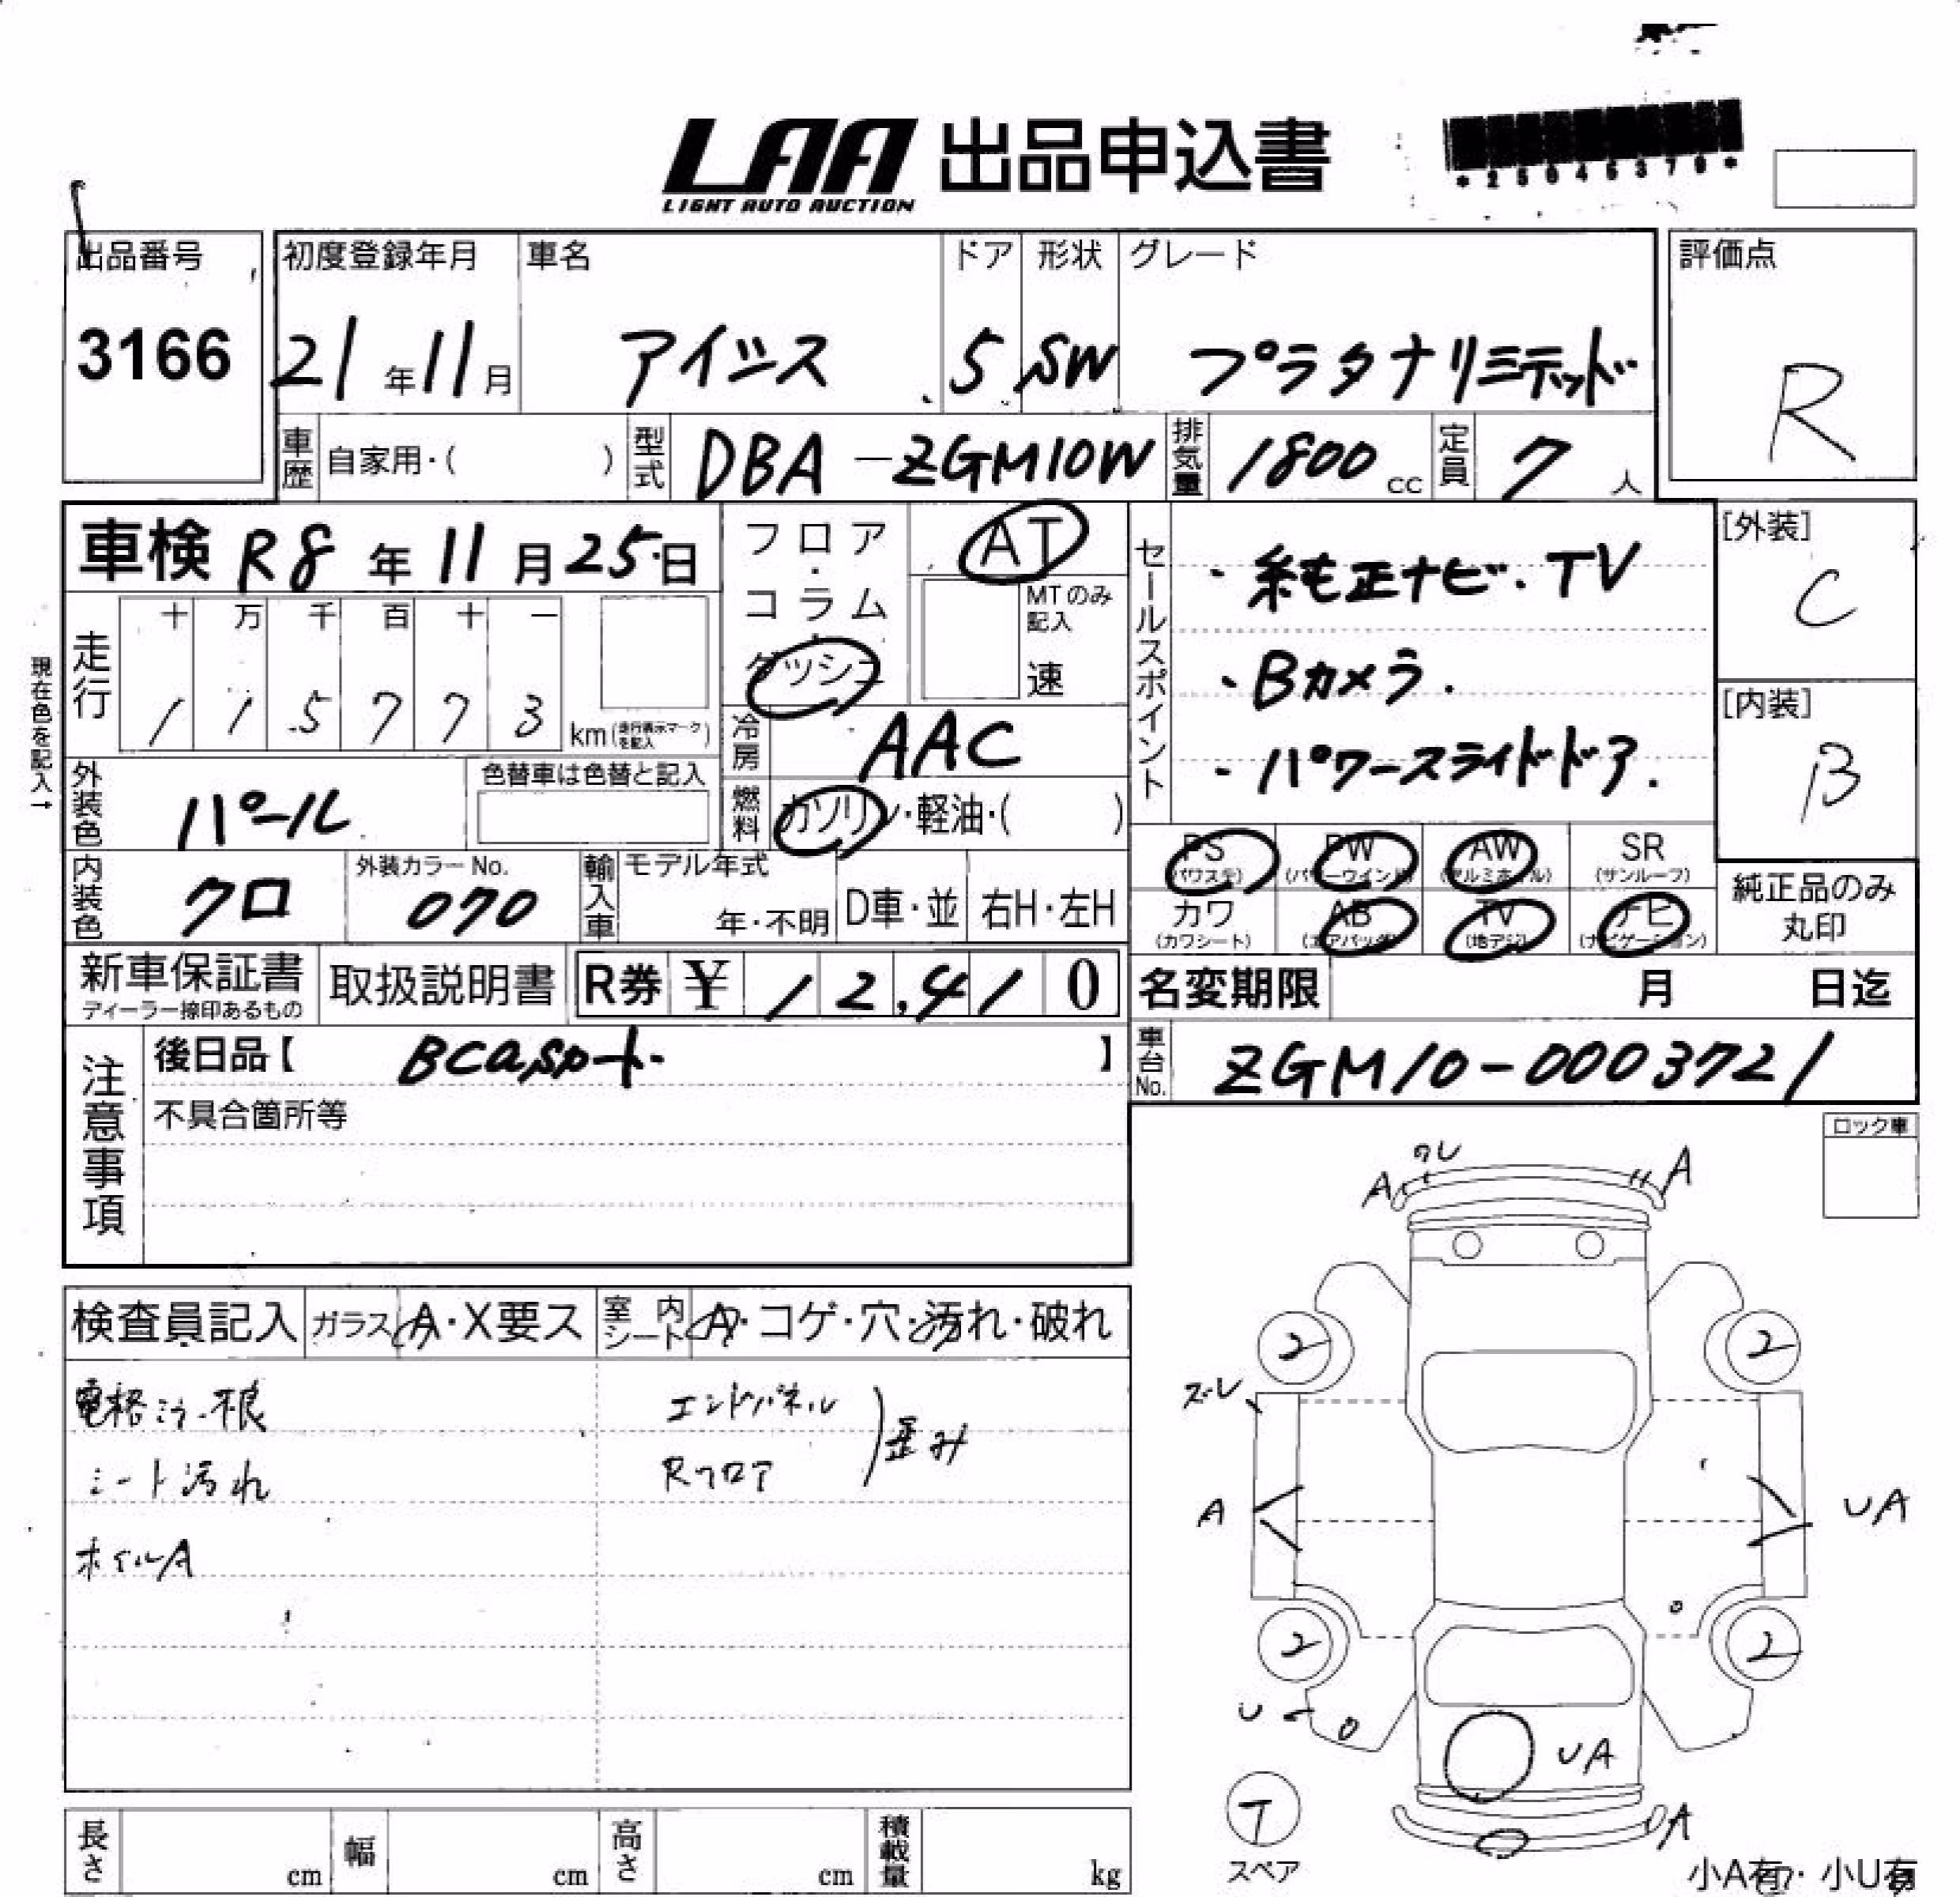 LAA 出品申込書
LIGHT AUTO AUCTION
*25045379*
出品番号
3166
初度登録年月 車名 ドア 形状 グレード
21年11月 アイシス 5 SW プラタナリミテッド
評価点
R
車歴 自家用・( ) 型式 DBA-ZGM10W 排気量 1800cc 定員 7人
車検 R8年11月25日
フロア・コラム・ダッシュ
AT
MTのみ記入
速
セールスポイント
・純正ナビ.TV
・Bカメラ.
・パワースライドドア.
[外装]
C
[内装]
B
現在色を記入→
走行
十 万 千 百 十 一
1 1 5 7 7 3 km(走行表示マークを記入)
冷房 AAC
外装色 パール
色替車は色替と記入
燃料 ガソリン・軽油・( )
PS (パワステ) PW (パワーウインド) AW (アルミホイル) SR (サンルーフ)
カワ (カワシート) AB (エアバッグ) TV (地デジ) ナビ (ナビゲーション)
純正品のみ丸印
内装色 クロ
外装カラーNo.
070
輸入車 モデル年式
年・不明 D車・並 右H・左H
新車保証書
ディーラー捺印あるもの
取扱説明書
R券 ¥ 12,410
名変期限 月 日迄
注意事項
後日品【 BCaspート 】
不具合箇所等
車台No. ZGM10-0003721
ロック車
検査員記入 ガラス A・X要ス 室内シート A・コゲ・穴・汚れ・破れ
電格ミラー不良 エンドパネル
シート汚れ Rフロア
歪み
ホイルA
ワレ
A A
2 2
ズレ
A UA
2 2
U
UA
T
スペア
A
小A有・小U有
長さ cm 幅 cm 高さ cm 積載量 kg